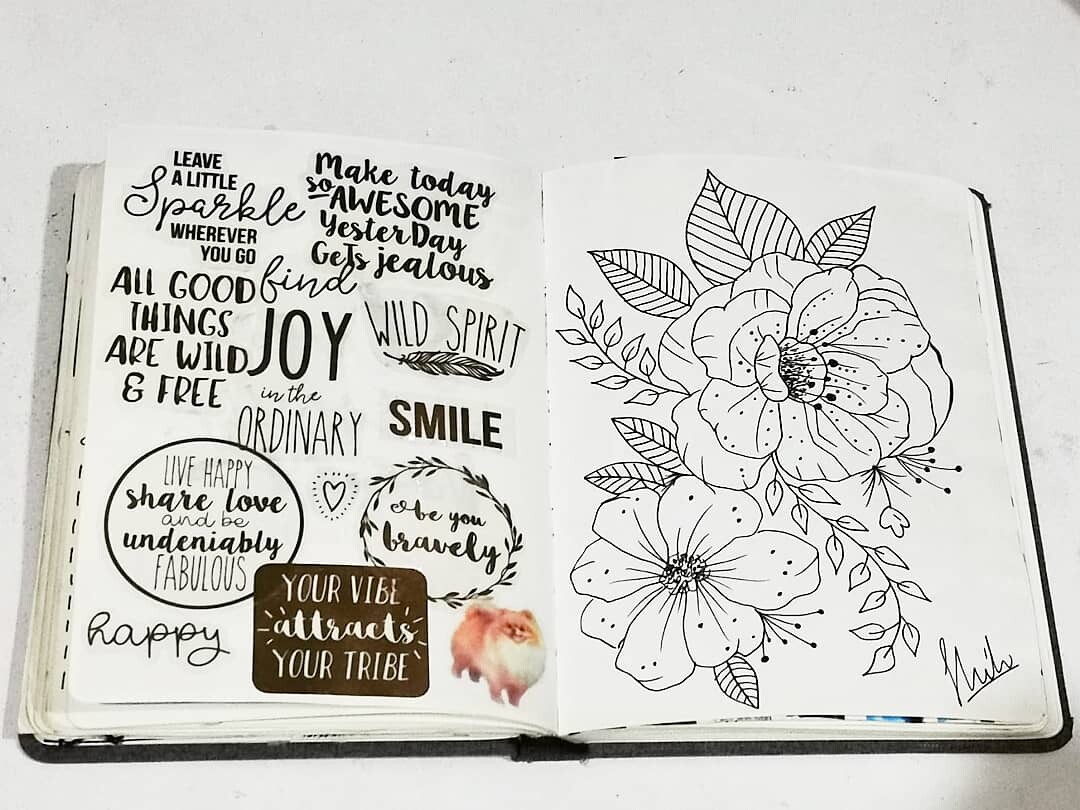 LEAVE
A LITTLE
Sparkle
WHEREVER
YOU GO
Make today
so AWESOME
YesterDay
GeTs jealous
ALL GOOD
THINGS
ARE WILD
& FREE
find
JOY
in the
ORDINARY
WILD SPIRIT
SMILE
LIVE HAPPY
share love
and be
undeniably
FABULOUS
be you
bravely
YOUR VIBE
attracts
YOUR TRIBE
happy